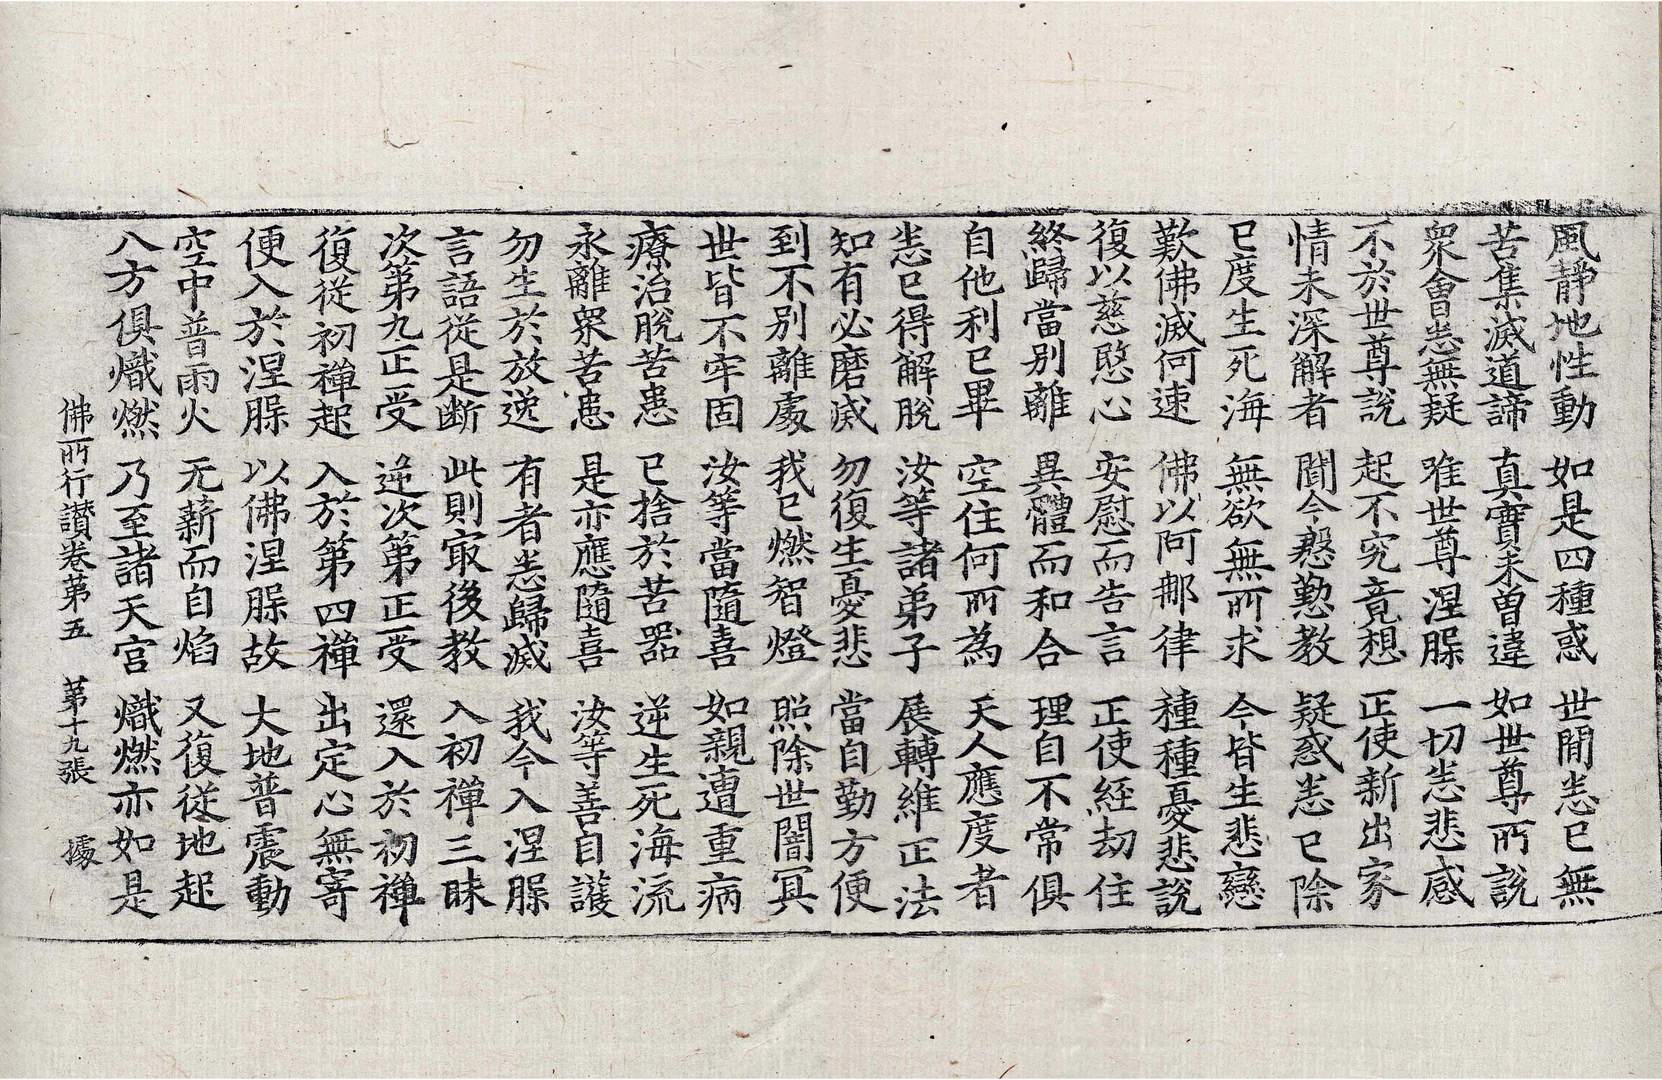 風靜地性動 如是四種惑 世間悉已無
苦集滅道諦 真實未曾違 如世尊所說
衆會悉無疑 唯世尊涅槃 一切悉悲感
不於世尊說 起不究竟想 正使新出家
情未深解者 聞今慇懃教 疑惑悉已除
已度生死海 無欲無所求 今皆生悲戀
歎佛滅何速 佛以阿那律 種種憂悲說
復以慈愍心 安慰而告言 正使經劫住
終歸當別離 異體而和合 理自不常俱
自他利已畢 空住何所為 天人應度者
悉已得解脫 汝等諸弟子 展轉維正法
知有必磨滅 勿復生憂悲 當自勤方便
到不別離處 我已燃智燈 照除世闇冥
世皆不牢固 汝等當隨喜 如親遭重病
療治脫苦患 已捨於苦器 逆生死海流
永離衆苦患 是亦應隨喜 汝等善自護
勿生於放逸 有者悉歸滅 我今入涅槃
言語從是断 此則冣後教 入初禪三昧
次第九正受 逆次第正受 還入於初禪
復從初禪起 入於第四禪 出定心無寄
便入於涅槃 以佛涅槃故 大地普震動
空中普雨火 无薪而自焰 又復從地起
八方俱熾燃 乃至諸天宫 熾燃亦如是
佛所行讚卷第五 第十九張 據